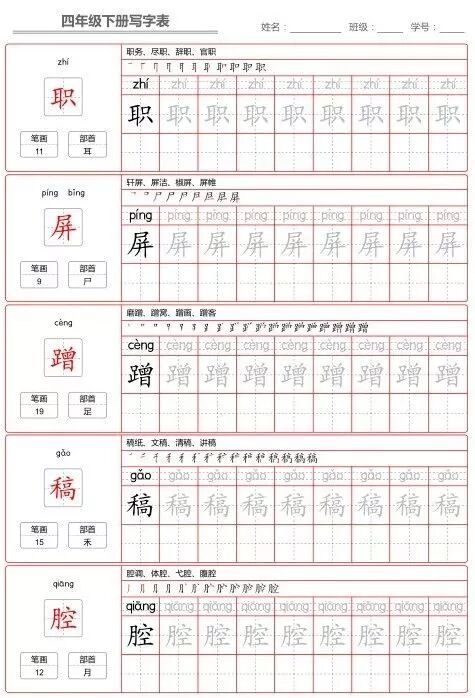 四年级下册写字表
姓名： 班级： 学号：
zhí
职
笔画 部首
11 耳
职务、尽职、辞职、官职
zhí zhí zhí zhí zhí zhí zhí zhí zhí
职 职 职 职 职 职 职 职 职
píng bǐng
屏
笔画 部首
9 尸
轩屏、屏洁、椒屏、屏帷
píng píng píng píng píng píng píng píng píng
屏 屏 屏 屏 屏 屏 屏 屏 屏
cèng
蹭
笔画 部首
19 足
磨蹭、蹭窝、蹭画、蹭客
cèng cèng cèng cèng cèng cèng cèng cèng cèng
蹭 蹭 蹭 蹭 蹭 蹭 蹭 蹭 蹭
gǎo
稿
笔画 部首
15 禾
稿纸、文稿、清稿、讲稿
gǎo gǎo gǎo gǎo gǎo gǎo gǎo gǎo gǎo
稿 稿 稿 稿 稿 稿 稿 稿 稿
qiāng
腔
笔画 部首
12 月
腔调、体腔、弋腔、腹腔
qiāng qiāng qiāng qiāng qiāng qiāng qiāng qiāng qiāng
腔 腔 腔 腔 腔 腔 腔 腔 腔